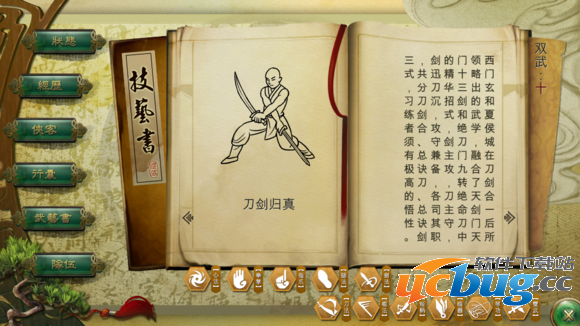 狀態
經歷
俠客
行囊
武藝書
隊伍
技藝書
刀剑归真
双武：十
西门玄和夏侯城在刀剑合一后所
领略出的武学，融合了天剑门天
门十三剑和绝刀门九转绝命刀中
的精华招式，剑主攻，刀主守，
剑迅刀沉，攻守兼备，各司其职
，共分刀剑合、总诀刀、总诀剑
三式，习练者须有极高的悟性。
软件下载站
ucbug.cc